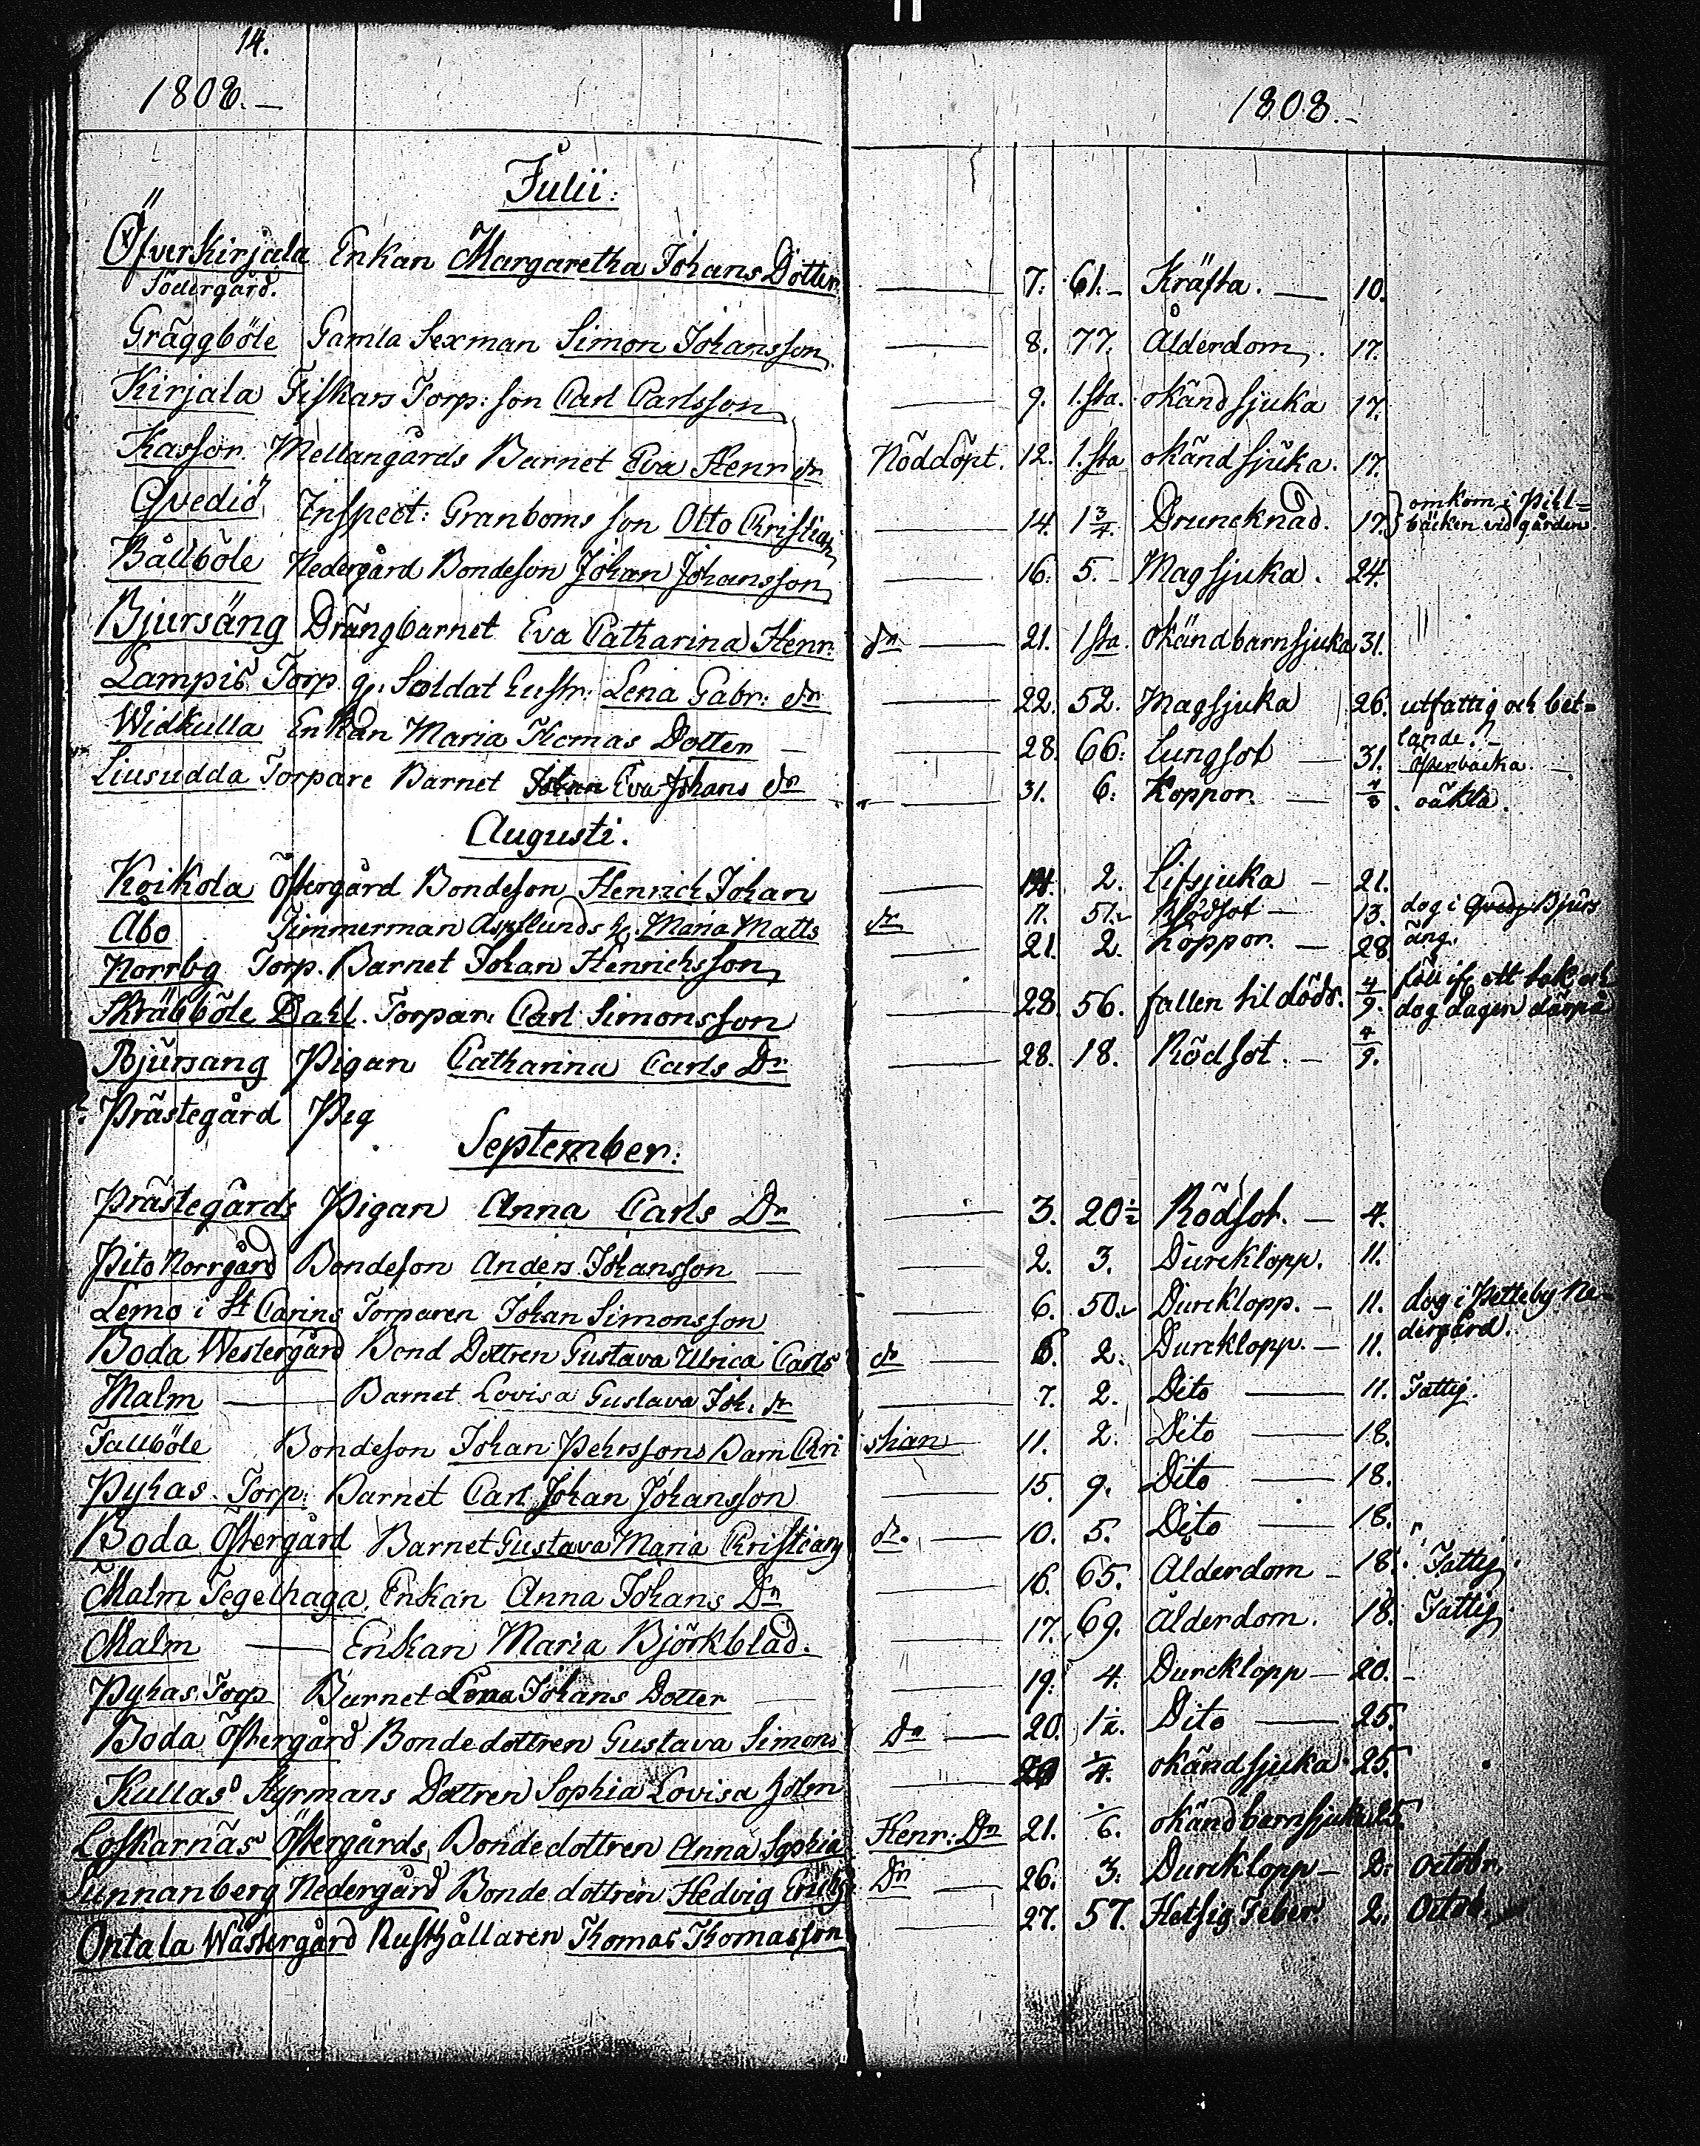 14.
1808.— 1808.—
Julii:
Öfverkirjala Enkan Margaretha Johans Dotter — 7. 61.— Kräfta. — 10.
Södergård.
Gräggböle Gamla Sexman Simon Johansson — 8. 77. Ålderdom. 17.
Kirjala Fiskars Torp: son Carl Carlsson — 9. 1.sta. okänd sjuka 17.
Kassor. Mellangårds Barnet Eva Henr dr Nöddöpt. 12. 1.sta okänd sjuka. 17.
Qvediö Inspect: Granboms son Otto Christian — 14. 1 3/4. Druncknad. 17. omkom i Pill=
bäcken vid gården.
Bållböle Nedergård Bondeson Johan Johansson — 16. 5.— Magsjuka. 24.
Bjursäng Drängbarnet Eva Catharina Henr: dr — 21. 1 sta. Okänd barnsjuka 31.
Lampis Torp. g. Soldat hustr: Lena Gabr: dr — 22. 52. Magsjuka 26. utfattig och bet=
lande.
Widkulla Enkan Maria Thomas Dotter — 28. 66. Lungsot — 31.
Liusudda Torpare Barnet Eva Johans dr — 31. 6. Koppor. — 7/8. oäkta.
Augusti.
Koikola Östergård Bondeson Henrich Johan — 2. Lifsjuka — 21.
Åbo Timmerman Asplunds h. Maria Matts dr 11. 51. Rödsot — 13. dog i Bjurs
äng.
Norrby Torp. Barnet Johan Henrichsson — 21. 2. Koppor. — 28.
Skräbböle Dahl. Torpar. Carl Simonsson — 28. 56. fallen til döds. 4/9. föll af ett tak och
dog dagen därpå
Bjursang Pigan Catharina Carls Dr — 28. 18. Rödsot. — 4/9.
Prästegård Pig
September:
Prästegårds Pigan Anna Carls Dr — 3. 20 1/2 Rödsot. — 4.
Pito Norrgård Bondeson Anders Johansson — 2. 3. Durcklopp. 11.
Lemo i St Carins Torparen Johan Simonsson — 6. 50. Durcklopp. — 11. dog i Petteby Ne=
dergård.
Boda Westergård Bond Dottren Gustava Ulrica Carls dr — 6. 2. Durcklopp. — 11.
Malm — Barnet Lovisa Gustava Joh. dr — 7. 2. Dito — 11. Fattig.
Fallböle Bondeson Johan Pehrssons Barn Chri stian — 11. 2. Dito — 18.
Pyhas. Torp: Barnet Carl Johan Johansson — 15. 9. Dito — 18.
Boda Östergård Barnet Gustava Maria Christians dr. — 10. 5. Dito — 18.
Malm Tegelhaga Enkan Anna Johans Dr — 16. 65. Ålderdom — 18. Fattig.
Malm — Enkan Maria Björkblad. — 17. 69. Ålderdom. 18. Fattig
Pyhas. Torp Barnet Lena Johans Dotter — 19. 4. Durcklopp — 20.—
Boda Östergård Bondedottren Gustava Simons Dr — 20. 1 1/2. Dito — 25.
Kullas Styrmans Dottren Sophia Lovisa Holm — 20 1/4. okänd sjuka. 25.
Lofskarnäs Östergårds Bondedottren Anna Sophia Henr: Dr 21. 1/6. okänd barnsjuka 25.
Sunnanberg Nedergård Bondedottren Hedvig Erichs Dr — 26. 3. Durcklopp — 2. Octobr.
Ontala Wästergård Rusthållaren Thomas Thomasson — 27. 57. Hetsig Feber. 2. Octob.